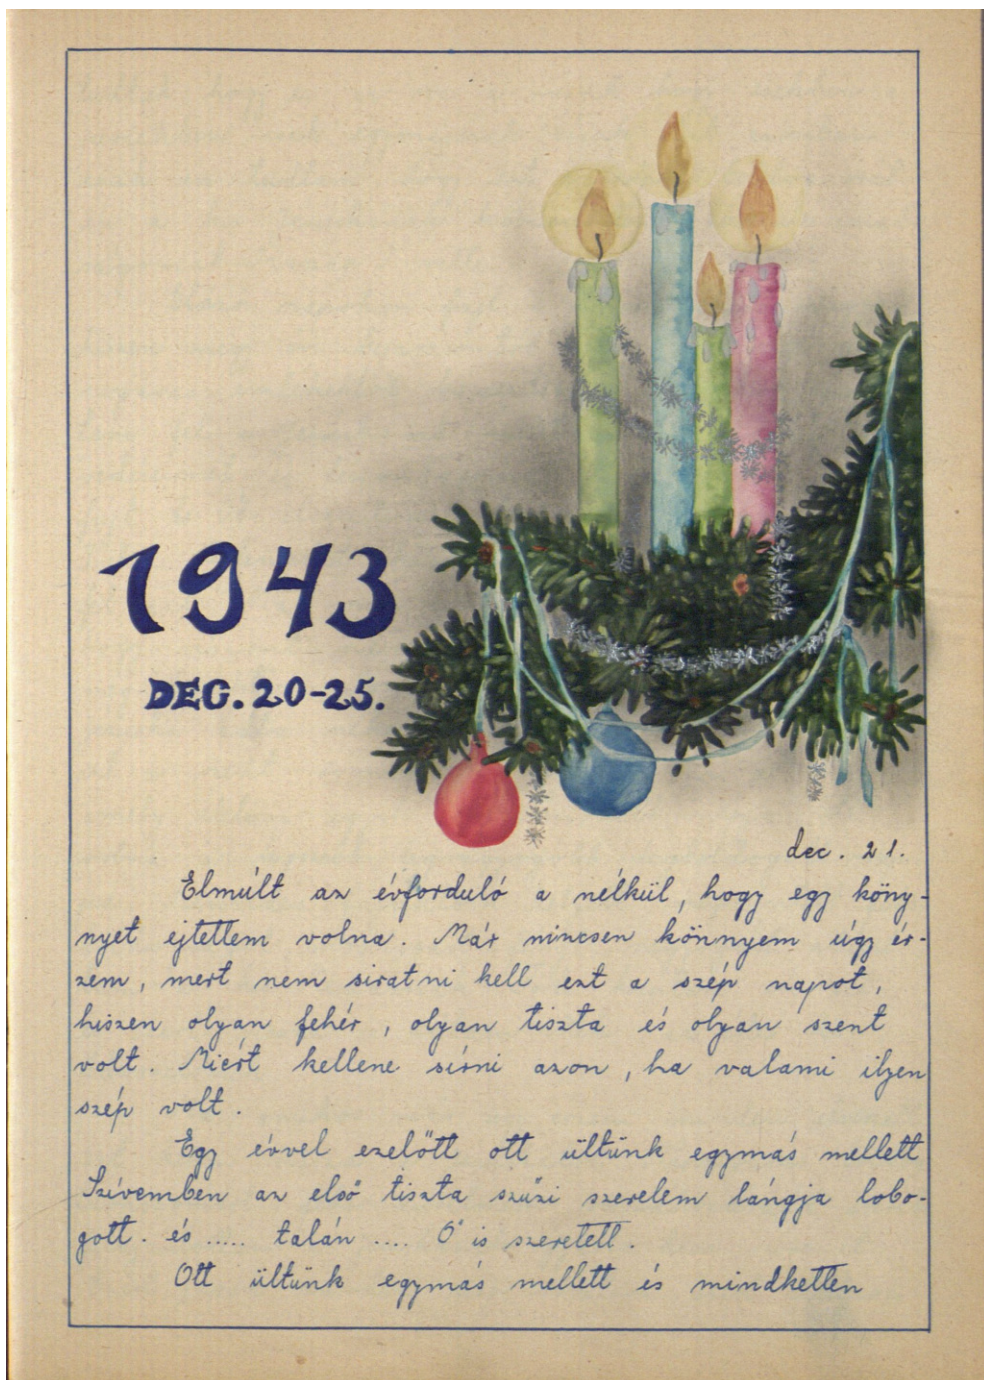 1943
DEC. 20-25.
dec. 21.
Elmúlt az évforduló a nélkül, hogy egy köny-
nyet ejtettem volna. Már nincsen könnyem úgy ér-
zem, mert nem siratni kell ezt a szép napot,
hiszen olyan fehér, olyan tiszta és olyan szent
volt. Miért kellene sírni azon, ha valami ilyen
szép volt.
Egy évvel ezelőtt ott ültünk egymás mellett
Szívemben az első tiszta szűzi szerelem lángja lobo-
gott. és ..... talán .... Ő is szeretett.
Ott ültünk egymás mellett és mindketten